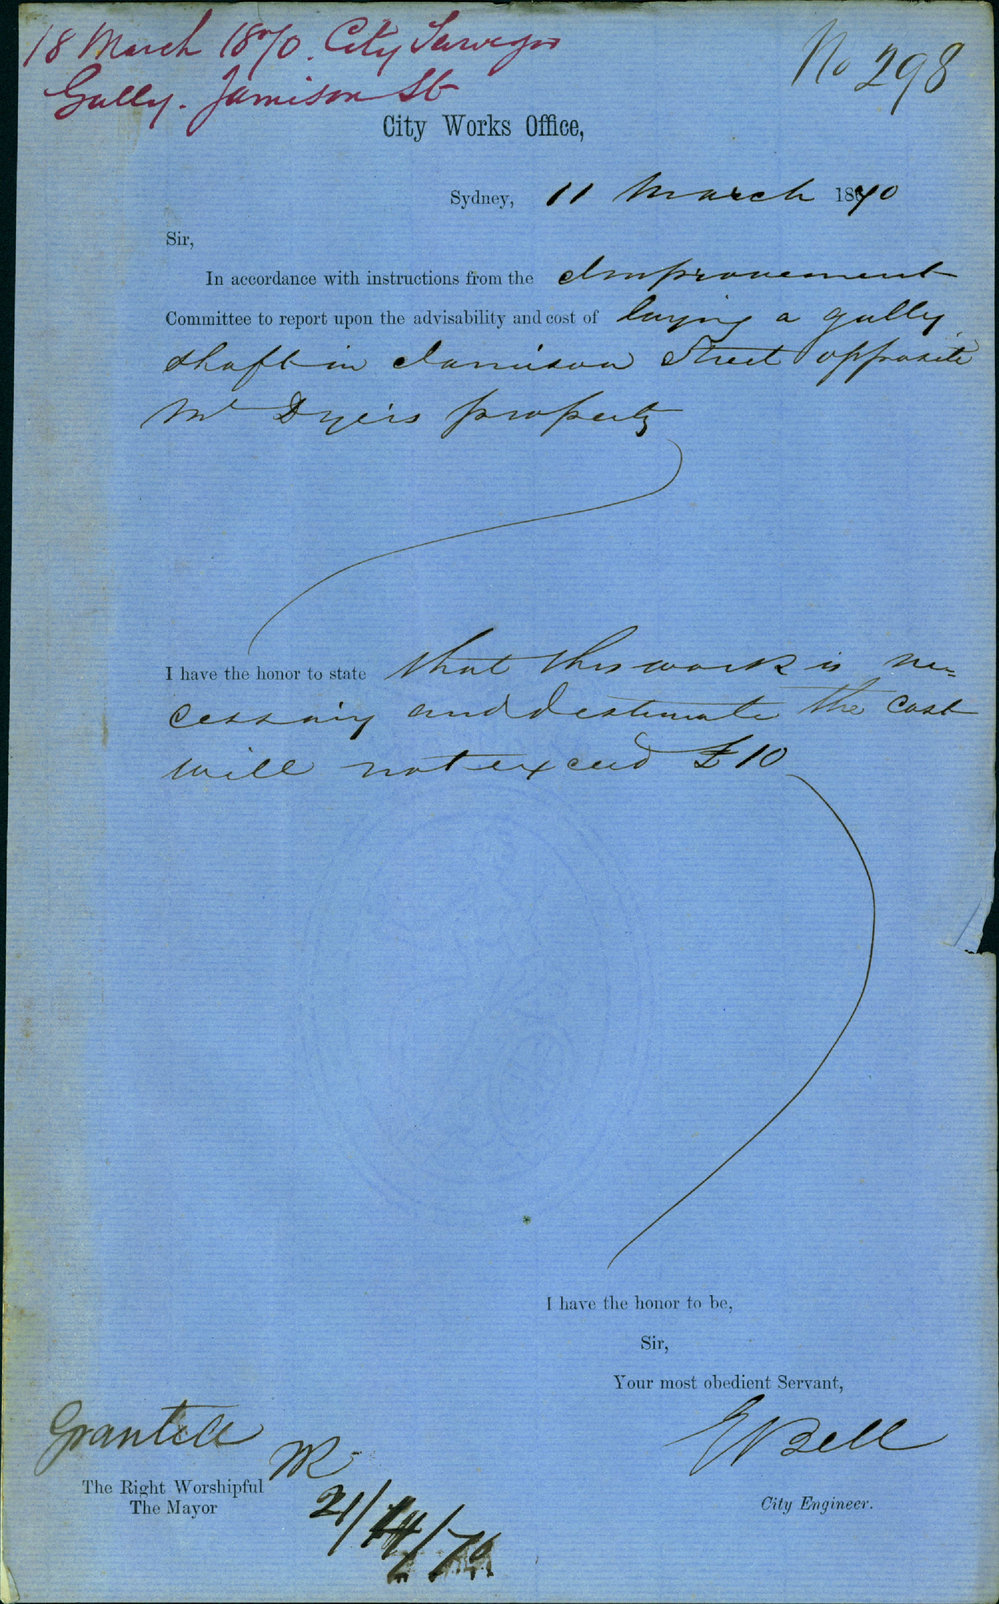 18 March 1870. City Surveyor
Gully. Jamison St
No 298
City Works Office,
Sydney, 11 March 1870
Sir,
In accordance with instructions from the Improvement
Committee to report upon the advisability and cost of laying a gully
shaft in Jamison Street opposite
Mr Dyers property
I have the honor to state that this work is ne-
cessary and I estimate the cost
will not exceed £10
I have the honor to be,
Sir,
Your most obedient Servant,
E Bell
City Engineer.
Granted
The Right Worshipful
The Mayor
21/ /70